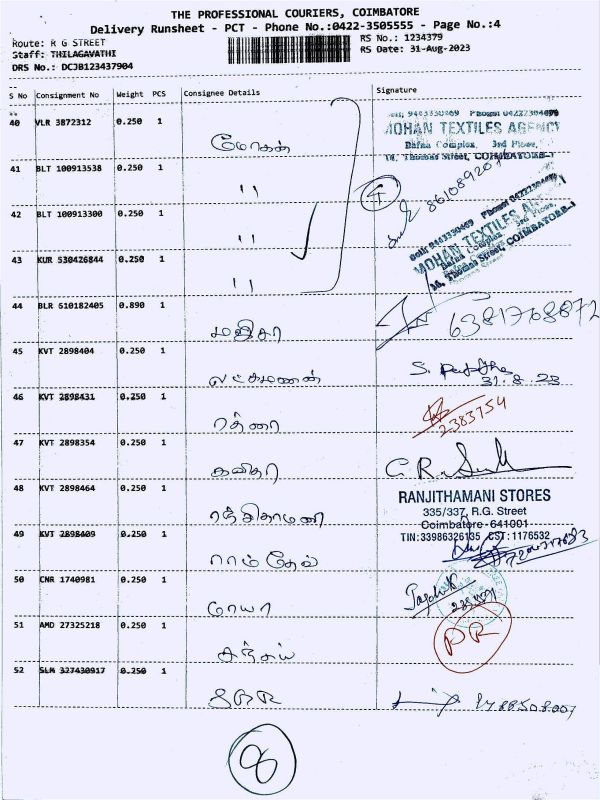 THE PROFESSIONAL COURIERS, COIMBATORE
Delivery Runsheet - PCT - Phone No.:0422-3505555 - Page No.:4
Route: R G STREET
RS No.: 1234379
Staff: THILAGAVATHI
RS Date: 31-Aug-2023
DRS No.: DCJB123437904
S No Consignment No Weight PCS Consignee Details Signature
40 VLR 3872312 0.250 1 மோகன்
MOHAN TEXTILES AGENCY
Dafna Complex, 3rd Floor,
14, Thomas Street, COIMBATORE-1
41 BLT 100913538 0.250 1 ''
42 BLT 100913300 0.250 1 ''
MOHAN TEXTILES
43 KUR 530426844 0.250 1 ''
44 BLR 510182405 0.890 1 6381768872
45 KVT 2898404 0.250 1 லட்சுமணன் S.
31.8.23
46 KVT 2898431 0.250 1 ரத்னா 2383754
47 KVT 2898354 0.250 1 கவிதா
48 KVT 2898464 0.250 1 ரஞ்சிதாமணி
RANJITHAMANI STORES
335/337, R.G. Street
Coimbatore-641001
TIN:33986326135 CST:1176532
49 KVT 2898409 0.250 1 ராம்தேவ்
50 CNR 1740981 0.250 1 மாயா
51 AMD 27325218 0.250 1 சஞ்சய் PR
52 SLM 327430917 0.250 1